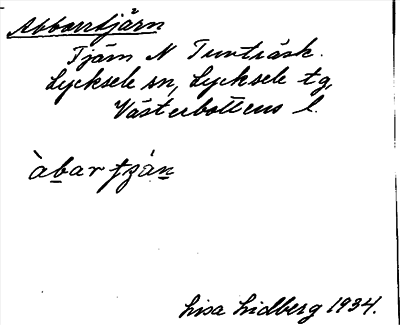 Abborrtjärn
Tjärn N Tunträsk.
Lycksele sn, Lycksele tg,
Västerbottens l.
àbartján
Lisa Lidberg 1934.